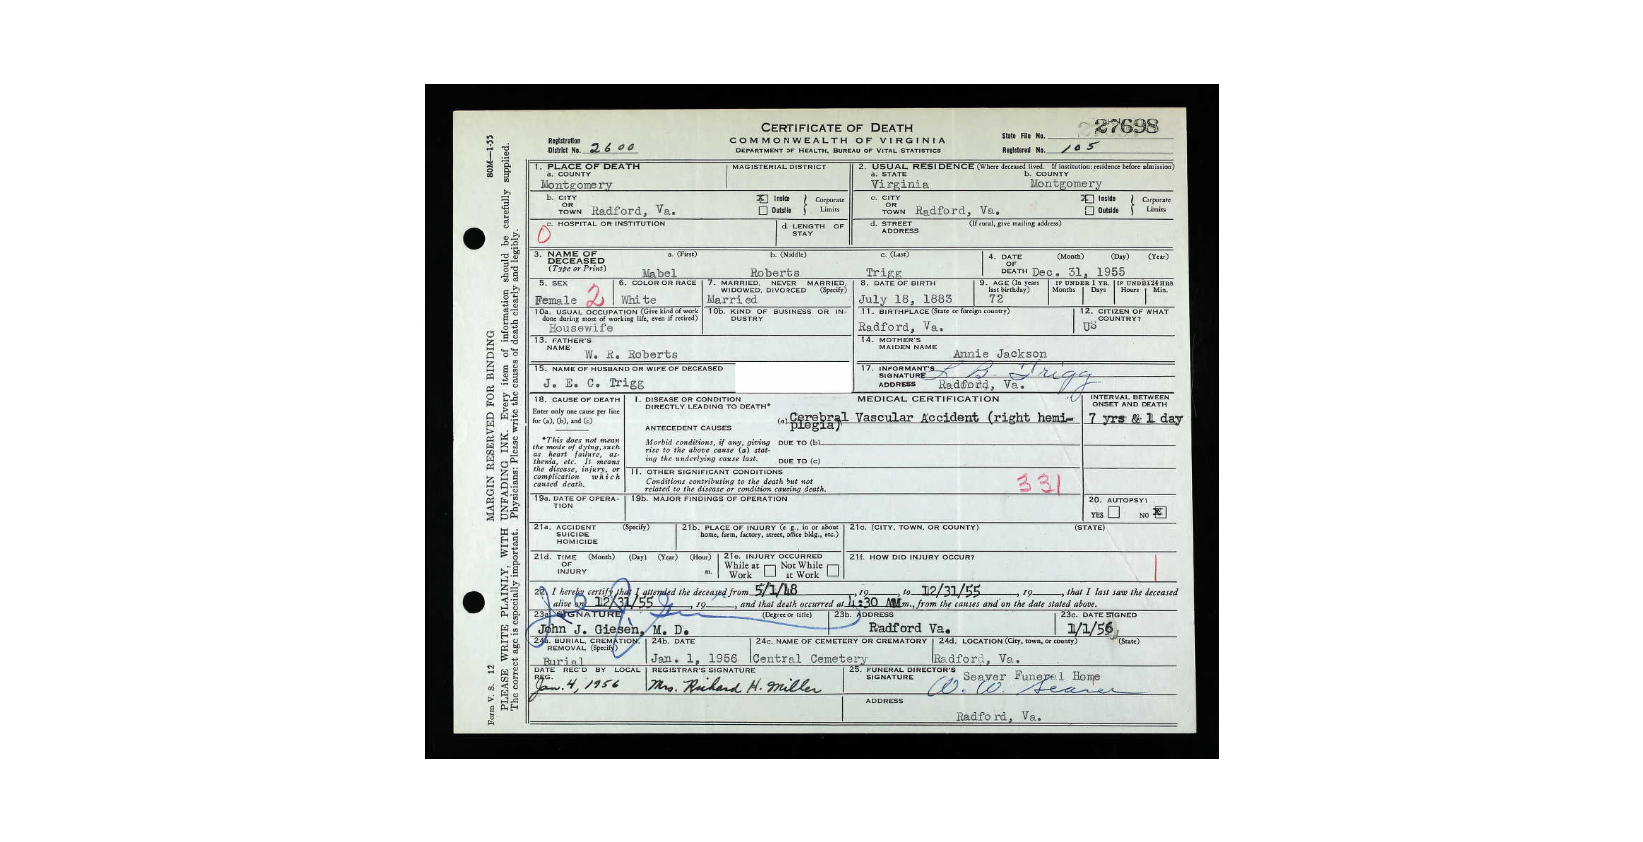 CERTIFICATE OF DEATH
COMMONWEALTH OF VIRGINIA
DEPARTMENT OF HEALTH, BUREAU OF VITAL STATISTICS
Registration District No. 2600
State File No. 27698
Registered No. 105
80M—1-55
MARGIN RESERVED FOR BINDING
PLEASE WRITE PLAINLY, WITH UNFADING INK. Every item of information should be carefully supplied.
The correct age is especially important. Physicians: Please write the causes of death clearly and legibly.
Form V. S. 12
1. PLACE OF DEATH
a. COUNTY
Montgomery
MAGISTERIAL DISTRICT
b. CITY OR TOWN Radford, Va.
X Inside
Outside
Corporate Limits
c. HOSPITAL OR INSTITUTION
0
d. LENGTH OF STAY
2. USUAL RESIDENCE (Where deceased lived. If institution: residence before admission)
a. STATE
Virginia
b. COUNTY
Montgomery
c. CITY OR TOWN Radford, Va.
X Inside
Outside
Corporate Limits
d. STREET ADDRESS
(If rural, give mailing address)
3. NAME OF DECEASED
(Type or Print)
a. (First)
b. (Middle)
c. (Last)
Mabel Roberts Trigg
4. DATE OF DEATH
(Month) (Day) (Year)
Dec. 31, 1955
5. SEX
Female
2
6. COLOR OR RACE
White
7. MARRIED, NEVER MARRIED, WIDOWED, DIVORCED (Specify)
Married
8. DATE OF BIRTH
July 18, 1883
9. AGE (In years last birthday)
72
IF UNDER 1 YR.
Months Days
IF UNDER 24 HRS
Hours Min.
10a. USUAL OCCUPATION (Give kind of work done during most of working life, even if retired)
Housewife
10b. KIND OF BUSINESS OR INDUSTRY
11. BIRTHPLACE (State or foreign country)
Radford, Va.
12. CITIZEN OF WHAT COUNTRY?
US
13. FATHER'S NAME
W. R. Roberts
14. MOTHER'S MAIDEN NAME
Annie Jackson
15. NAME OF HUSBAND OR WIFE OF DECEASED
J. E. C. Trigg
17. INFORMANT'S SIGNATURE
L B Trigg
ADDRESS Radford, Va.
18. CAUSE OF DEATH
Enter only one cause per line for (a), (b), and (c)
*This does not mean the mode of dying, such as heart failure, asthenia, etc. It means the disease, injury, or complication which caused death.
I. DISEASE OR CONDITION DIRECTLY LEADING TO DEATH*
MEDICAL CERTIFICATION
(a) Cerebral Vascular Accident (right hemi-
plegia)
ANTECEDENT CAUSES
Morbid conditions, if any, giving rise to the above cause (a) stating the underlying cause last.
DUE TO (b)
DUE TO (c)
INTERVAL BETWEEN ONSET AND DEATH
7 yrs & 1 day
II. OTHER SIGNIFICANT CONDITIONS
Conditions contributing to the death but not related to the disease or condition causing death.
331
19a. DATE OF OPERATION
19b. MAJOR FINDINGS OF OPERATION
20. AUTOPSY?
YES NO X
21a. ACCIDENT SUICIDE HOMICIDE
(Specify)
21b. PLACE OF INJURY (e g., in or about home, farm, factory, street, office bldg., etc.)
21c. (CITY, TOWN, OR COUNTY)
(STATE)
21d. TIME OF INJURY
(Month) (Day) (Year) (Hour)
m.
21e. INJURY OCCURRED
While at Work
Not While at Work
21f. HOW DID INJURY OCCUR?
22. I hereby certify that I attended the deceased from 5/1/48, 19 , to 12/31/55, 19 , that I last saw the deceased
alive on 12/31/55, 19 , and that death occurred at 4:30 AM m., from the causes and on the date stated above.
23a. SIGNATURE
(Degree or title)
John J. Giesen, M. D.
23b. ADDRESS
Radford Va.
23c. DATE SIGNED
1/1/56
24a. BURIAL, CREMATION, REMOVAL (Specify)
Burial
24b. DATE
Jan. 1, 1956
24c. NAME OF CEMETERY OR CREMATORY
Central Cemetery
24d. LOCATION (City, town, or county)
(State)
Radford, Va.
DATE REC'D BY LOCAL REG.
Jan. 4, 1956
REGISTRAR'S SIGNATURE
Mrs. Richard H. Miller
25. FUNERAL DIRECTOR'S SIGNATURE
Seaver Funeral Home
W. W. Seaver
ADDRESS
Radford, Va.